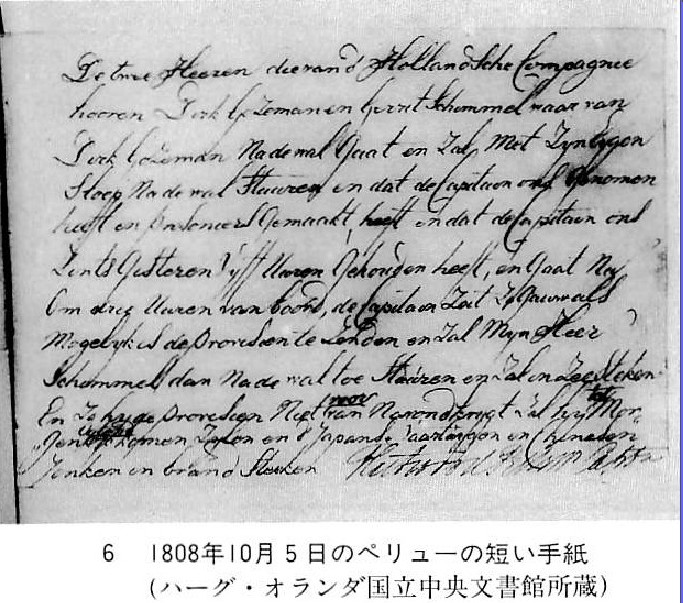 De twee Heeren die van d Hollandsche Compagnie
hooren Dirk Gozeman en Gerrit Schimmel waar van
Dirk Gozeman Na de wal Gaat en Zal Met Zyn Eygen
Sloep Na de wal Stuuren en dat de Capitaon ons Genomen
heeft en prisoniers Gemaakt heeft en dat de Capitain ons
Zints Gisteren Vyff Uuren Gehouden heeft, en Gaat Nu
Om drie Uuren van boord, de Capitaon Zeit Zo Gauw als
Mogelyk is de provisien te Zenden en Zal Myn Heer
Schimmel dan Na de wal toe Stuuren en Zal in Zee Steken
En Zo hy de provisien Niet voor Navond krygt Zal hy Mor
gen komen Zylen en d Japanse Vaartuigen en Chineesen
Jonken in brand Steeken
6 1808年10月5日のペリューの短い手紙
(ハーグ・オランダ国立中央文書館所蔵)